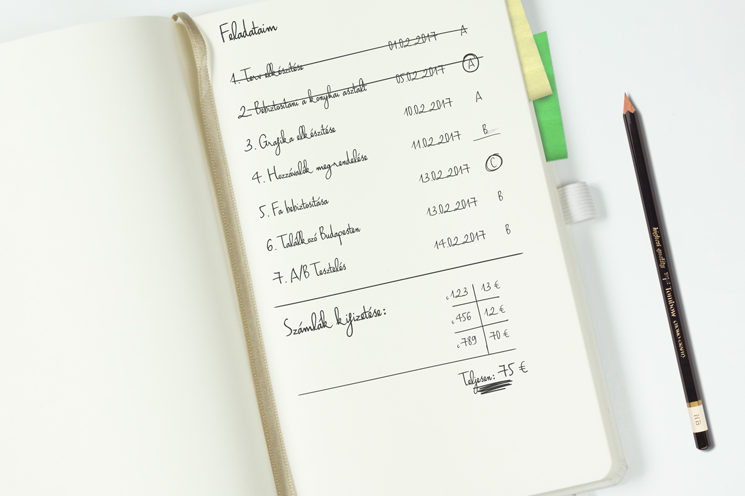 Feladataim
1. Terv elkészítése 01.02.2017 A
2. Bebiztosítani a konyhai asztalt 05.02.2017 A
3. Grafika elkészítése 10.02.2017 A
4. Hozzávalók megrendelése 11.02.2017 B
5. Fa bebiztosítása 13.02.2017 C
6. Találkozó Budapesten 13.02.2017 B
7. A/B Tesztelés 14.02.2017 B
Számlák kifizetése:
.123 13 €
.456 12 €
.789 70 €
Teljesen: 75 €
Tombow
HB